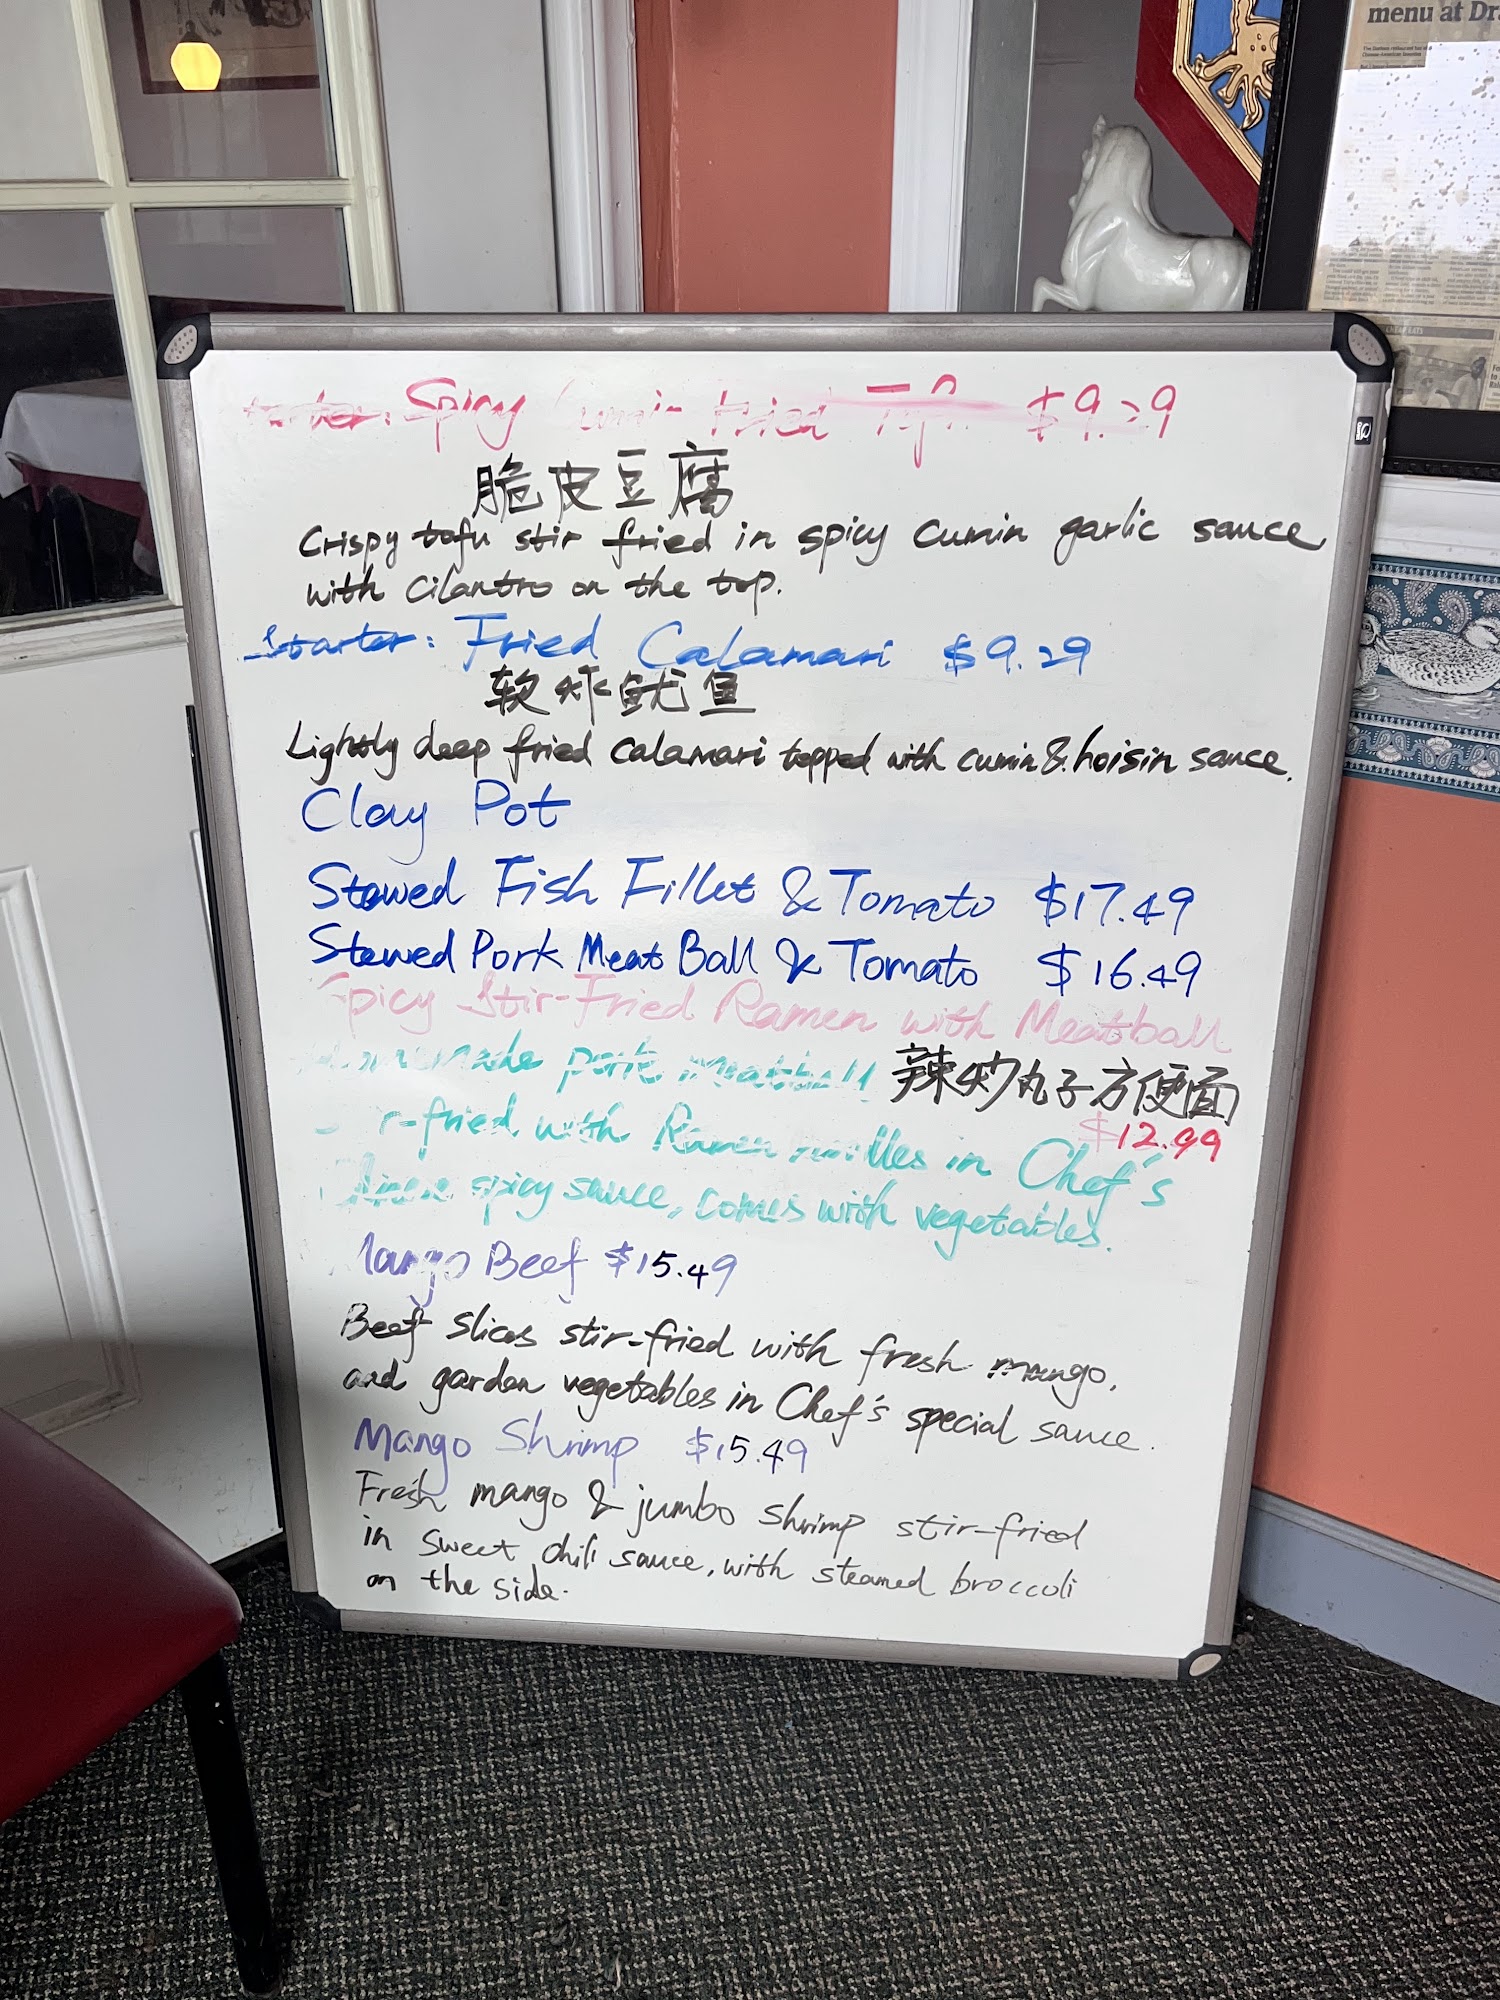 Starter: Spicy Cumin fried Tofu $9.29
脆皮豆腐
Crispy tofu stir fried in spicy cumin garlic sauce
with cilantro on the top.
Starter: Fried Calamari $9.29
软炸鱿鱼
Lightly deep fried calamari topped with cumin & hoisin sauce.
Clay Pot
Stewed Fish Fillet & Tomato $17.49
Stewed Pork Meat Ball & Tomato $16.49
Spicy Stir-Fried Ramen with Meatball
Homemade pork meatball 辣炒丸子方便面
r-fried with Ramen noodles in Chef's
$12.99
spicy sauce, comes with vegetables.
Mango Beef $15.49
Beef slices stir-fried with fresh mango,
and garden vegetables in Chef's special sauce.
Mango Shrimp $15.49
Fresh mango & jumbo shrimp stir-fried
in sweet chili sauce, with steamed broccoli
on the side.
menu at Dr.
CHEAP EATS